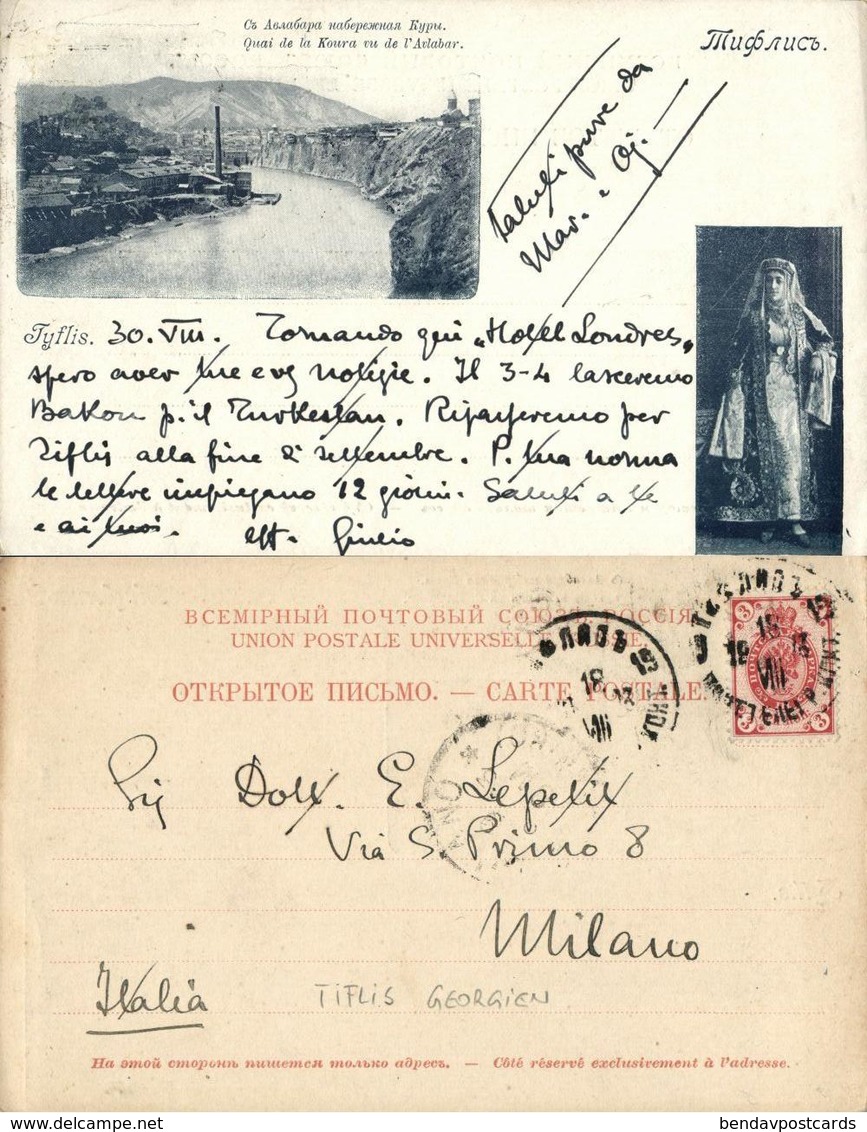 Съ Авлабара набережная Куры.
Quai de la Koura vu de l'Avlabar.
Тифлисъ.
Saluti pure da
Mar. e
Tyflis. 30. VIII. Tornando qui „Hotel Londres„
spero aver tue e vs notizie. Il 3-4 lasceremo
Bakou p. il Turkestan. Ripasseremo per
Tiflis alla fine di settembre. P. tua norma
le lettere impiegano 12 giorni. Saluti a te
e ai tuoi. aff. Giulio
ВСЕМІРНЫЙ ПОЧТОВЫЙ СОЮЗЪ. РОССІЯ.
UNION POSTALE UNIVERSELLE. RUSSIE.
ОТКРЫТОЕ ПИСЬМО. — CARTE POSTALE.
Dott. E. Lepetit
Via S. Primo 8
Milano
Italia
TIFLIS GEORGIEN
На этой сторонѣ пишется только адресъ. — Côté réservé exclusivement à l'adresse.
bendavpostcards